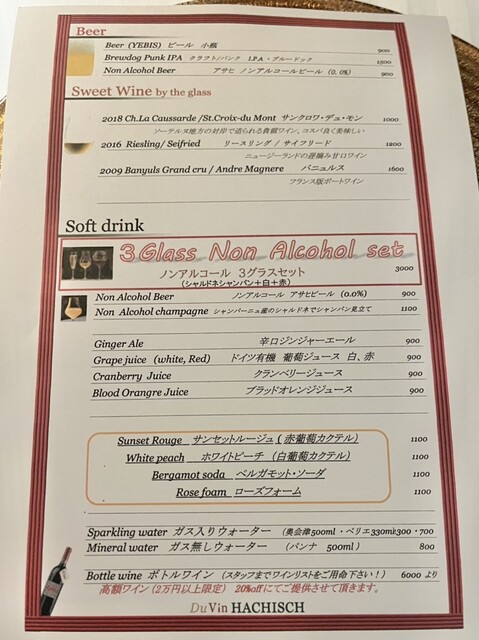 Beer
Beer (YEBIS) ビール 小瓶 900
Brewdog Punk IPA クラフト/パンク I.P.A・ブルードック 1500
Non Alcohol Beer アサヒ ノンアルコールビール (0.0%) 900
Sweet Wine by the glass
2018 Ch.La Caussarde /St.Croix-du Mont サンクロワ・デュ・モン 1000
ソーテルヌ地方の対岸で造られる貴腐ワイン、コスパ良く美味しい
2016 Riesling/ Seifried リースリング / サイフリード 1200
ニュージーランドの遅摘み甘口ワイン
2009 Banyuls Grand cru / Andre Magnere バニュルス 1600
フランス版ポートワイン
Soft drink
3 Glass Non Alcohol set
ノンアルコール 3グラスセット 3000
(シャルドネシャンパン+白+赤)
Non Alcohol Beer ノンアルコール アサヒビール (0.0%) 900
Non Alcohol champagne シャンパーニュ産のシャルドネでシャンパン見立て 1100
Ginger Ale 辛口ジンジャーエール 900
Grape juice (white, Red) ドイツ有機 葡萄ジュース 白、赤 900
Cranberry Juice クランベリージュース 900
Blood Orangre Juice ブラッドオレンジジュース 900
Sunset Rouge サンセットルージュ ( 赤葡萄カクテル) 1100
White peach ホワイトピーチ (白葡萄カクテル) 1100
Bergamot soda ベルガモット・ソーダ 1100
Rose foam ローズフォーム 1100
Sparkling water ガス入りウォーター (奥会津500ml・ペリエ330ml)300・700
Mineral water ガス無しウォーター (パンナ 500ml ) 800
Bottle wine ボトルワイン (スタッフまでワインリストをご用命下さい!) 6000 より
高額ワイン(2万円以上限定) 20%offにてご提供させて頂きます。
Du Vin HACHISCH